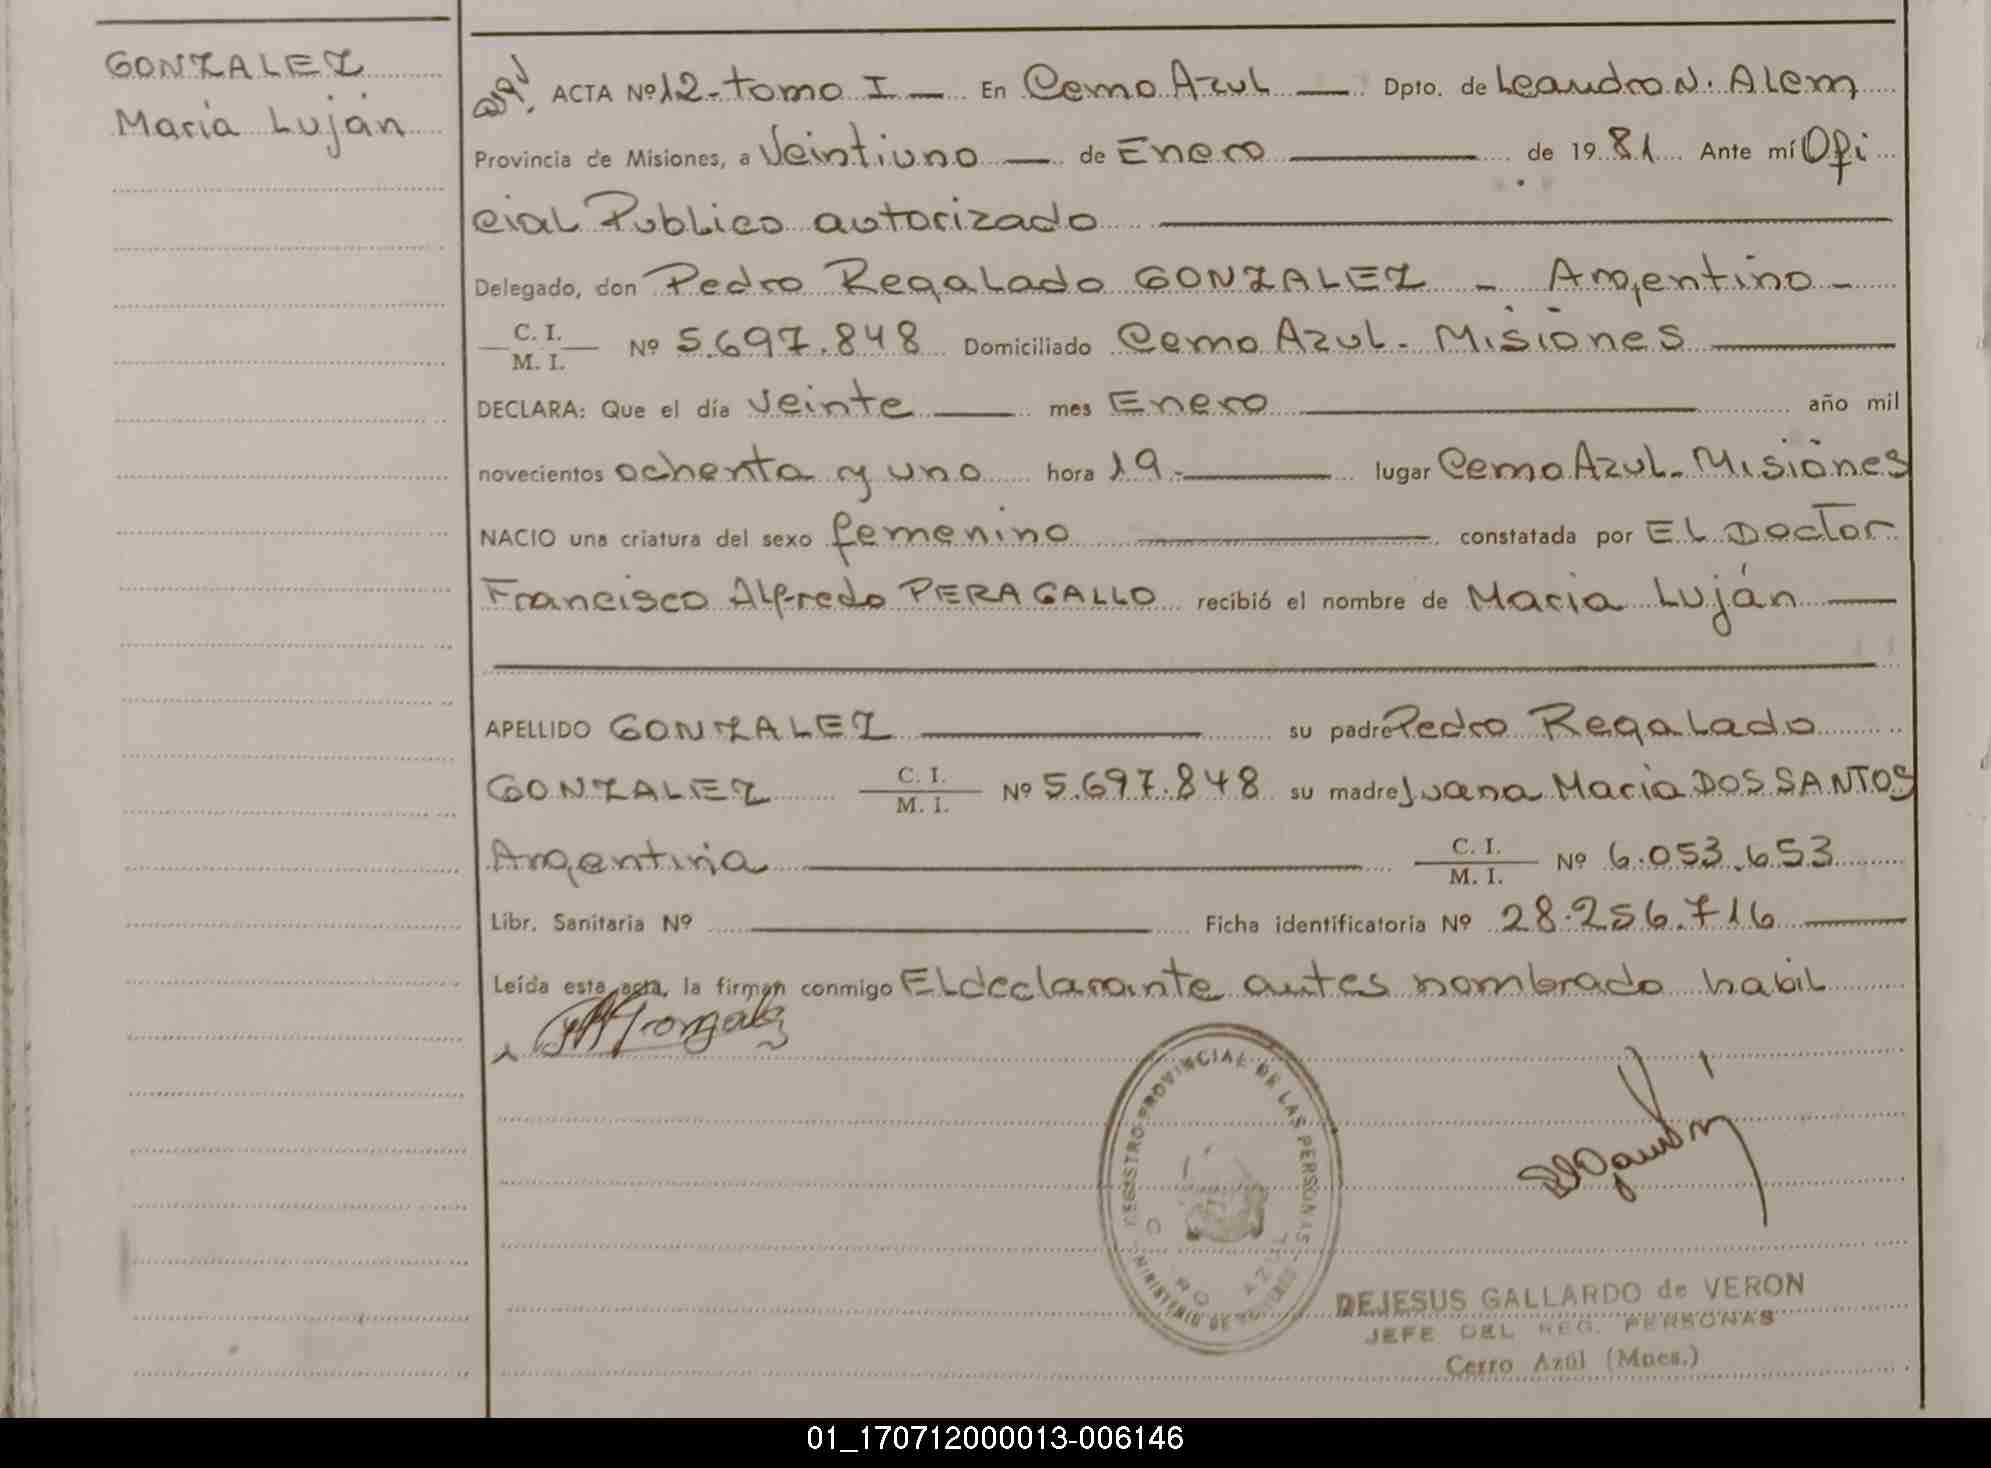 GONZALEZ
María Luján
ACTA Nº 12-tomo I — En Cerro Azul — Dpto. de Leandro N. Alem
Provincia de Misiones, a Veintiuno — de Enero — de 19 81 Ante mí Ofi
cial Publico autorizado
Delegado, don Pedro Regalado GONZALEZ - Argentino -
C. I.
M. I. Nº 5.697.848 Domiciliado Cerro Azul - Misiones
DECLARA: Que el día Veinte — mes Enero — año mil
novecientos ochenta y uno hora 19.- lugar Cerro Azul - Misiones
NACIO una criatura del sexo femenino — constatada por EL Doctor
Francisco Alfredo PERAGALLO recibió el nombre de María Luján —
APELLIDO GONZALEZ — su padre Pedro Regalado
GONZALEZ C. I. M. I. Nº 5.697.848 su madre Juana Maria DOS SANTOS
Argentina — C. I. M. I. Nº 6.053.653
Libr. Sanitaria Nº — Ficha identificatoria Nº 28.256.716 —
Leída esta acta, la firman conmigo El declarante antes nombrado habil
REGISTRO PROVINCIAL DE LAS PERSONAS
DEJESUS GALLARDO de VERON
JEFE DEL REG. PERSONAS
Cerro Azúl (Mnes.)
01_170712000013-006146